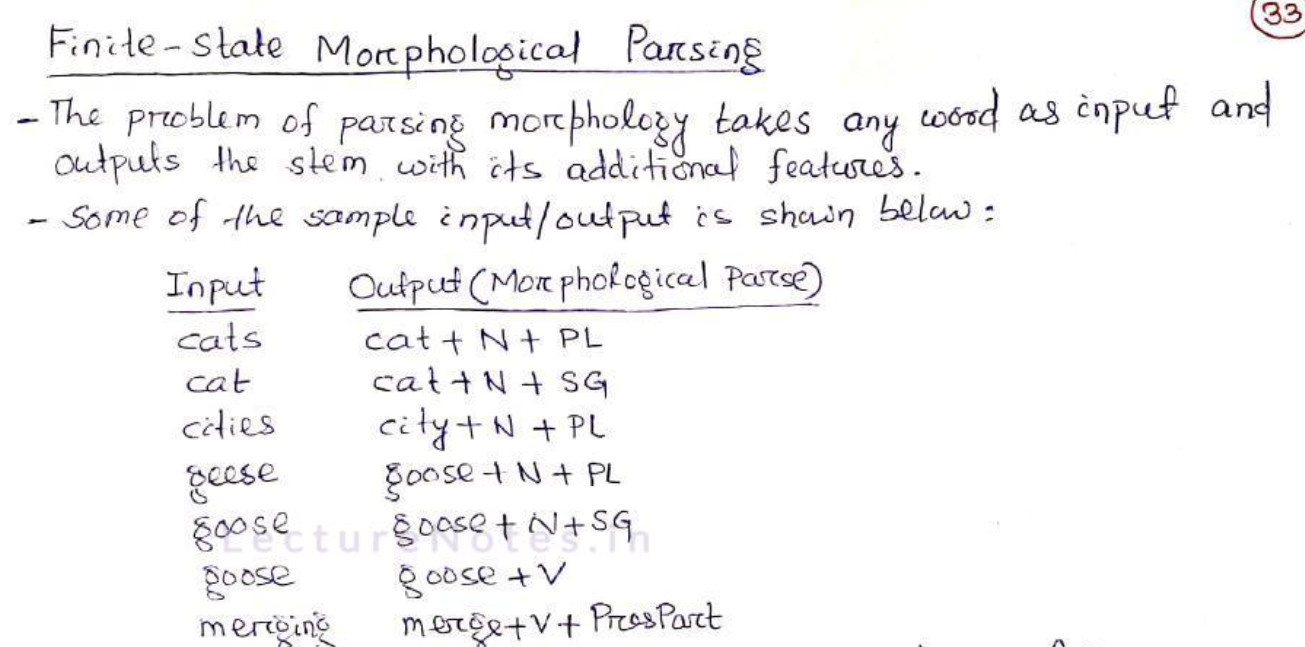 33
Finite-State Morphological Parsing
- The problem of parsing morphology takes any word as input and
outputs the stem with its additional features.
- Some of the sample input/output is shown below:
Input Output (Morphological Parse)
cats cat + N + PL
cat cat + N + SG
cities city + N + PL
geese goose + N + PL
goose goose + N + SG
LectureNotes.in
goose goose + V
merging merge + V + PresPart